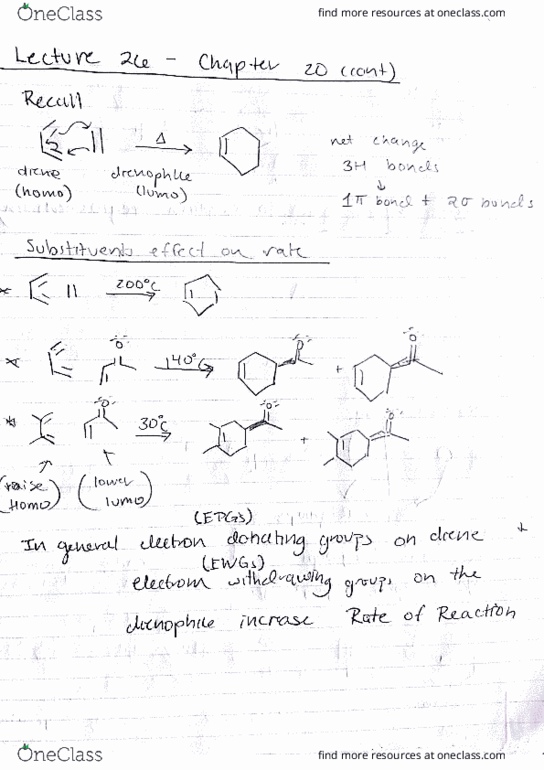 OneClass
find more resources at oneclass.com
Lecture 26 - Chapter 20 (cont)
Recall
Δ
diene
(homo)
dienophile
(lumo)
net change
3π bonds
↓
1π bond + 2σ bonds
Substituents effect on rate
200°C
O
140°C
O
+
O
O
30°C
O
+
O
(raise
Homo)
(lower
lumo)
(EDGs)
In general electron donating groups on diene +
(EWGs)
electron withdrawing groups on the
dienophile increase Rate of Reaction
OneClass
find more resources at oneclass.com